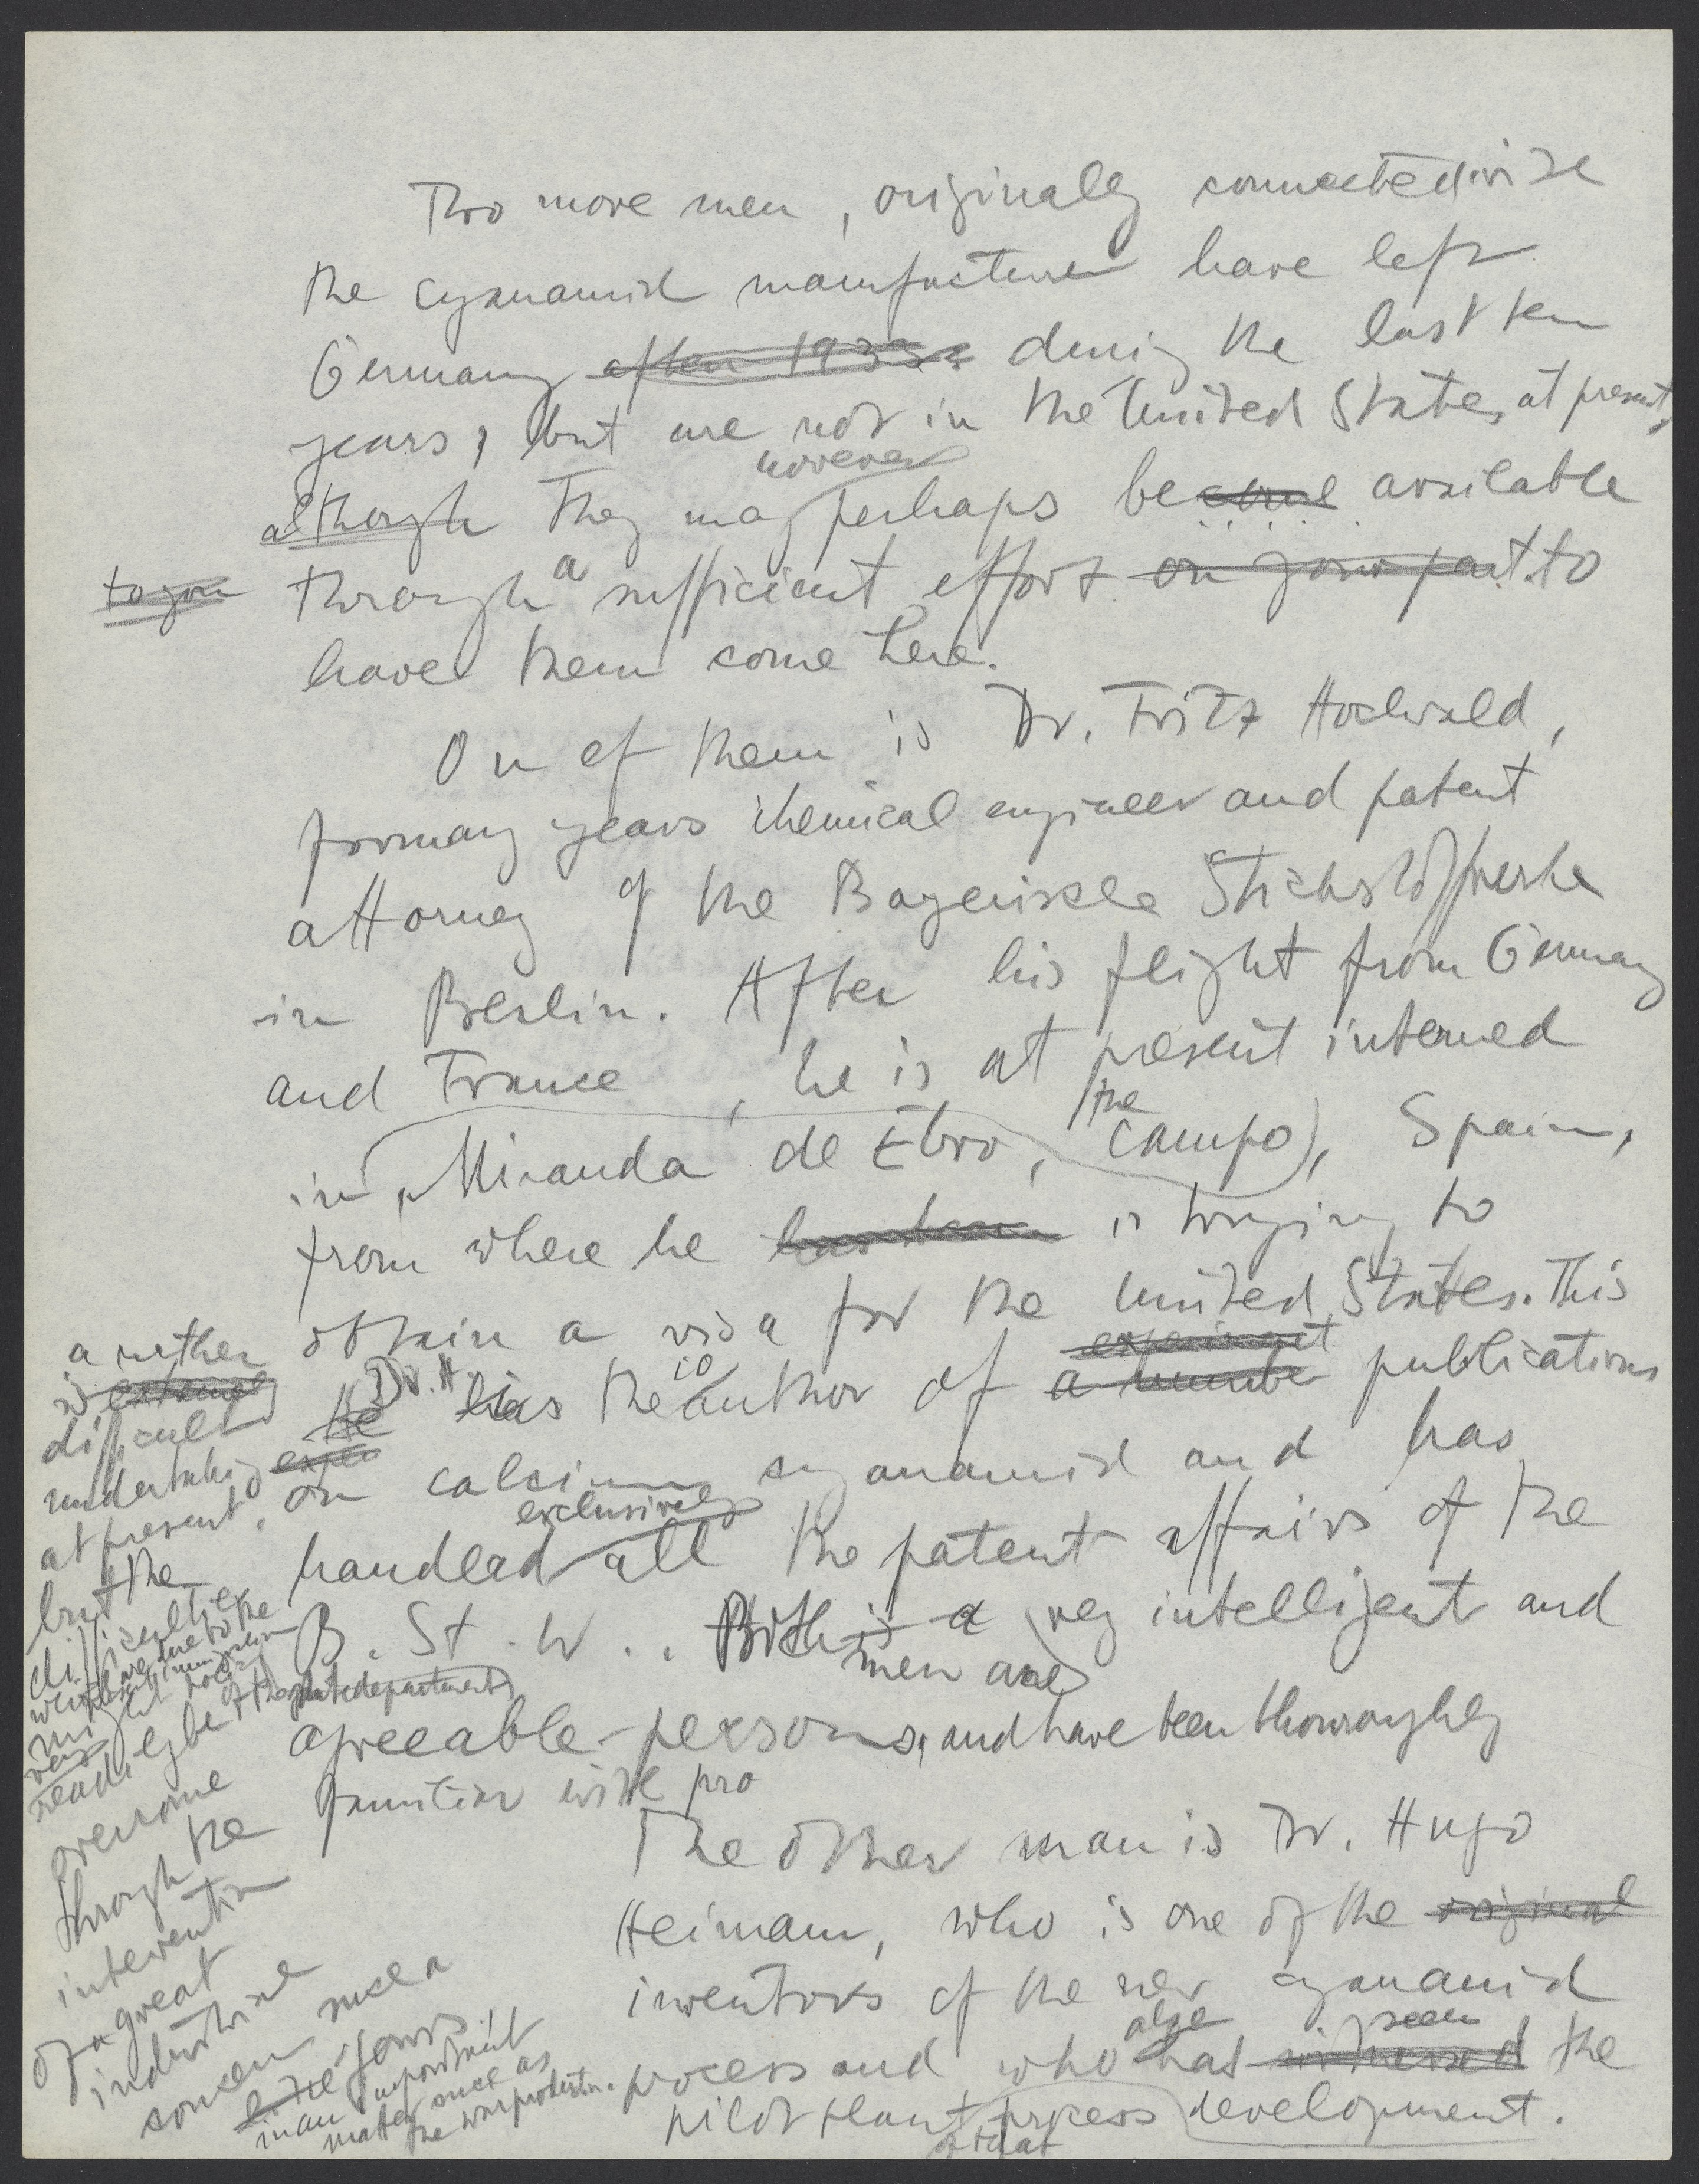 Two more men, originally connected with
the cyanamid manufacture have left
Germany after 1933 during the last ten
years, but are not in the United States at present,
however
although they may perhaps become available
to you
through a sufficient effort on your part to
have them come here.
On of them is Dr. Fritz Hochwald,
for many years chemical engineer and patent
attorney of the Bayerische Stickstoffwerke
in Berlin. After his flight from Germany
and France, he is at present interned
in Miranda de Ebro, (the campo), Spain,
from where he has been is trying to
obtain a visa for the United States. This
is extremely a rather
difficult
undertaking
at present,
but the
difficulties
which are due to the
might
readily be
overcome
through the
intervention
of a great
industrial
concern such a
like yours
in an important
matter such as
the war production.
He Dr. H. is the author of a number publications
on calcium cyanamid and has
exclusively
handled all the patent affairs of the
B. St. W.. Both is a very intelligent and
men are
agreeable persons, and have been thouroughly
familiar with pro
The other man is Dr. Hugo
Heimann, who is one of the original
inventors of the new cyanamid
also seen
process and who has witnessed the
pilot plant process development.
of that